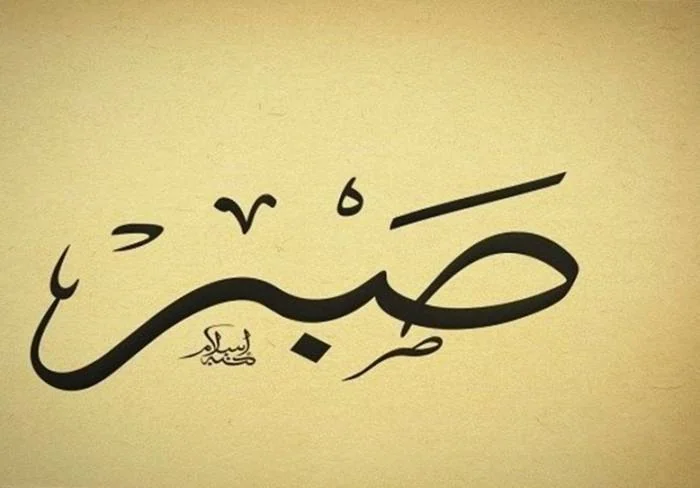 صَبْر
كتبه إسلام